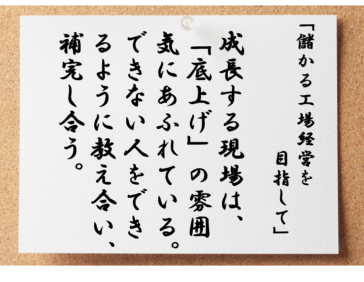 「儲かる工場経営を
目指して」
成長する現場は、
「底上げ」の雰囲
気にあふれている。
できない人をでき
るように教え合い、
補完し合う。